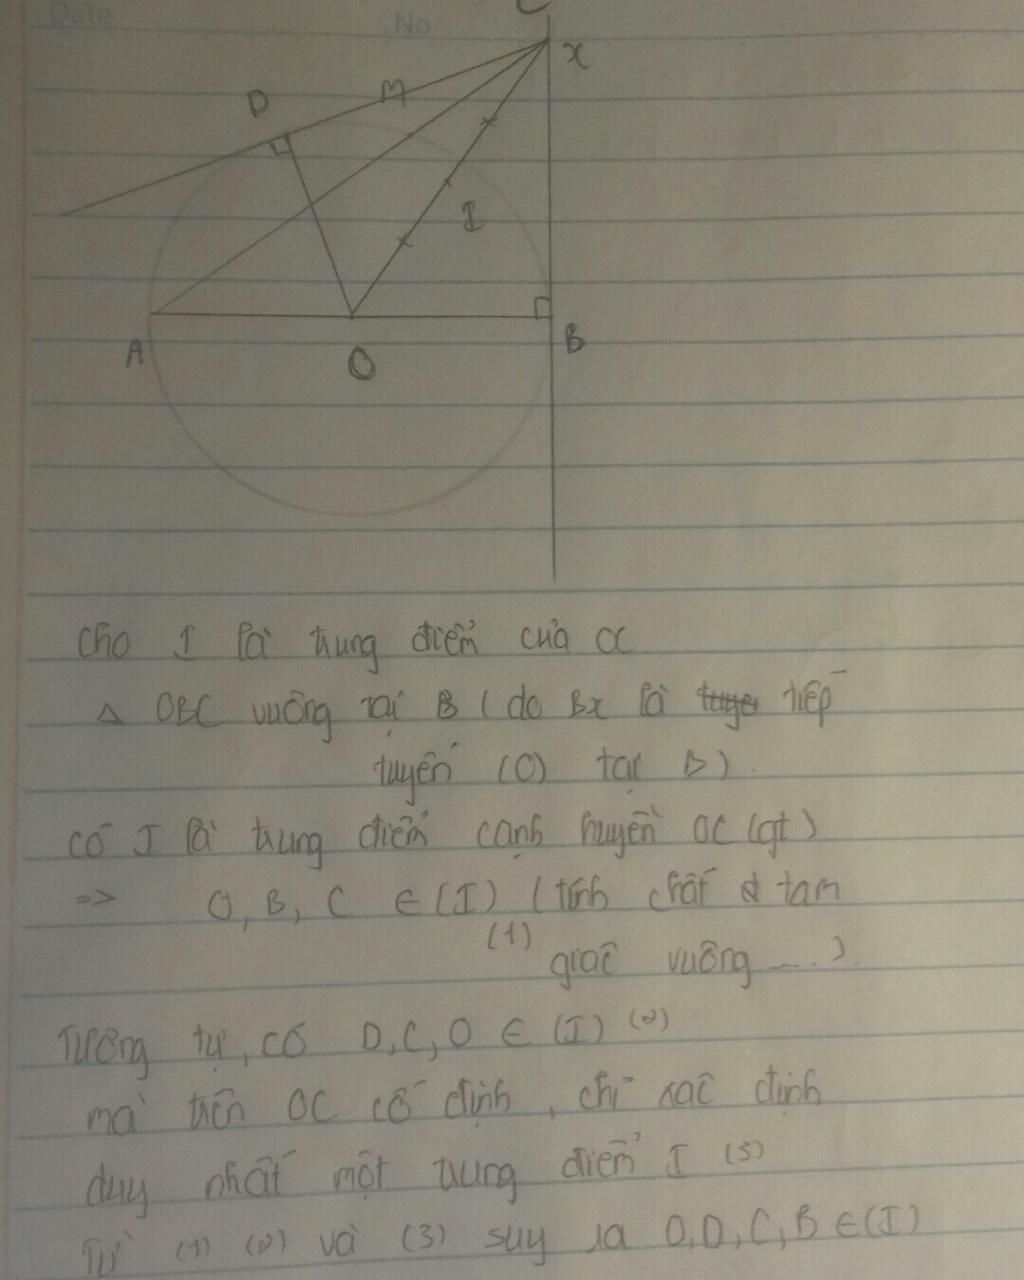 Date
No
C
x
D
M
I
A
O
B
Cho I là trung điểm của OC
Δ OBC vuông tại B (do Bx là tiếp
tuyến (O) tại B).
có I là trung điểm cạnh huyền OC (gt)
=> O, B, C ∈ (I) (tính chất tam
(1)
giác vuông ....).
Tương tự, có D, C, O ∈ (I) (2)
mà trên OC cố định, chỉ xác định
duy nhất một trung điểm I (3)
Từ (1) (2) và (3) suy ra O, D, C, B ∈ (I)